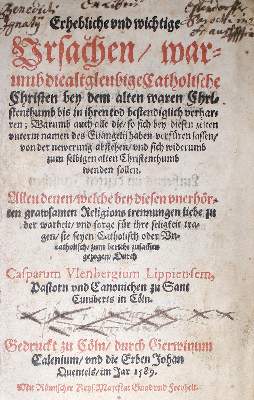 Erhebliche vnd wichtige
Vrsachen / war-
umb die altglenbige Catholische
Christen bey dem alten waren Chri-
stenthumb bis in ihren tod bestendiglich verhar-
ren; Warumb auch alle die so sich bey diesen zeiten
vnterm namen des Euangelij haben verfüren lassen,
von der newerung abstehen / vnd sich widerumb
zum selbigen alten Christenthumb
wenden sollen.
Allen denen / welche bey diesen vnerhör-
ten grawsamen Religions trennungen liebe zu
der warheit / vnd sorge für ihre seligkeit tra-
gen / sie seyen Catholisch oder Vn-
catholisch / zum bericht zusamen
gezogen / Durch
Casparum Vlenbergium Lippiensem,
Pastorn vnd Canonichen zu Sant
Cuniberts in Cöln.
Gedruckt zu Cöln / durch Gerwinum
Calenium / vnd die Erben Johan
Quentels / im Jar 1589.
Mit Römischer Keys. Maiestat Gnad vnd Freyheit.